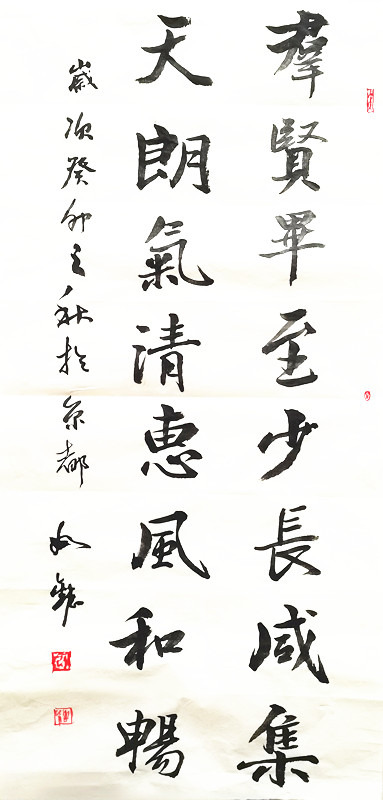 羣賢畢至少長咸集
天朗氣清惠風和暢
歲次癸卯之秋於京都